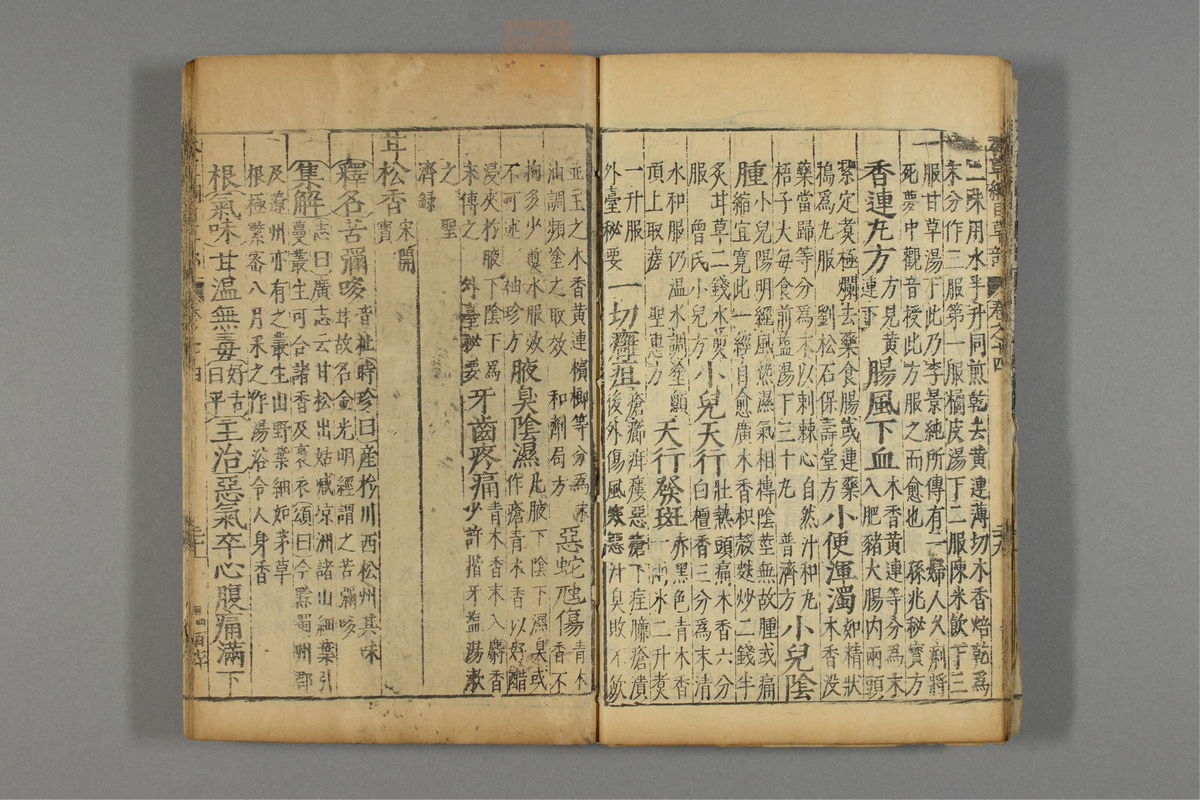 本草綱目草部 卷之十四 二十九
二味用水半升同煎乾去黄連薄切木香焙乾爲
末分作三服第一服橘皮湯下二服陳米飲下三
服甘草湯下此乃李景純所傳有一婦人久痢將
死夢中觀音授此方服之而愈也 孫兆秘寶方
香連丸方 方見黄連下 腸風下血 木香黄連等分爲末入肥豬大腸内兩頭
紮定煮極爛去藥食腸或連藥
搗爲丸服 劉松石保壽堂方 小便渾濁 如精狀木香没
藥當歸等分爲末以刺棘心自然汁和丸
梧子大每食前鹽湯下三十丸 普濟方 小兒陰
腫 小兒陽明經風熱濕氣相搏陰莖無故腫或痛
縮宜寛此一經自愈廣木香枳殼麩炒二錢半
炙甘草二錢水煎
服 曾氏小兒方 小兒天行 壯熱頭痛木香六分白檀香三分爲末清
水和服仍温水調塗顖
頂上取瘥 聖惠方 天行發斑 赤黑色青木香
一 水二升煮
一升服
外臺秘要 一切癰疽 瘡癤疳瘻惡瘡下疰臁瘡潰
後外傷風寒惡汁臭敗不斂
並主之木香黄連檳榔等分爲末
油調頻塗之取效 和劑局方 惡蛇虺傷 青木香不
拘多少煎水服效
不可述 袖珍方 腋臭陰濕 凡腋下陰下濕臭或作瘡青木香以好醋
浸夾於腋下陰下爲
末傅之 外臺秘要 牙齒疼痛 青木香末入麝香少許揩牙鹽湯漱
之 聖
濟録
甘松香 宋開寶
釋名 苦彌哆 音扯 時珍曰産於川西松州其味
甘故名金光明經謂之苦彌哆
集解 志曰廣志云甘松出姑臧凉州諸山細葉引
蔓叢生可合諸香及裛衣頌曰今黔蜀州郡
及遼州亦有之叢生山野葉細如茅草
根極繁密八月采之作湯浴令人身香
根氣味 甘温無毒 好古曰平 主治惡氣卒心腹痛滿下